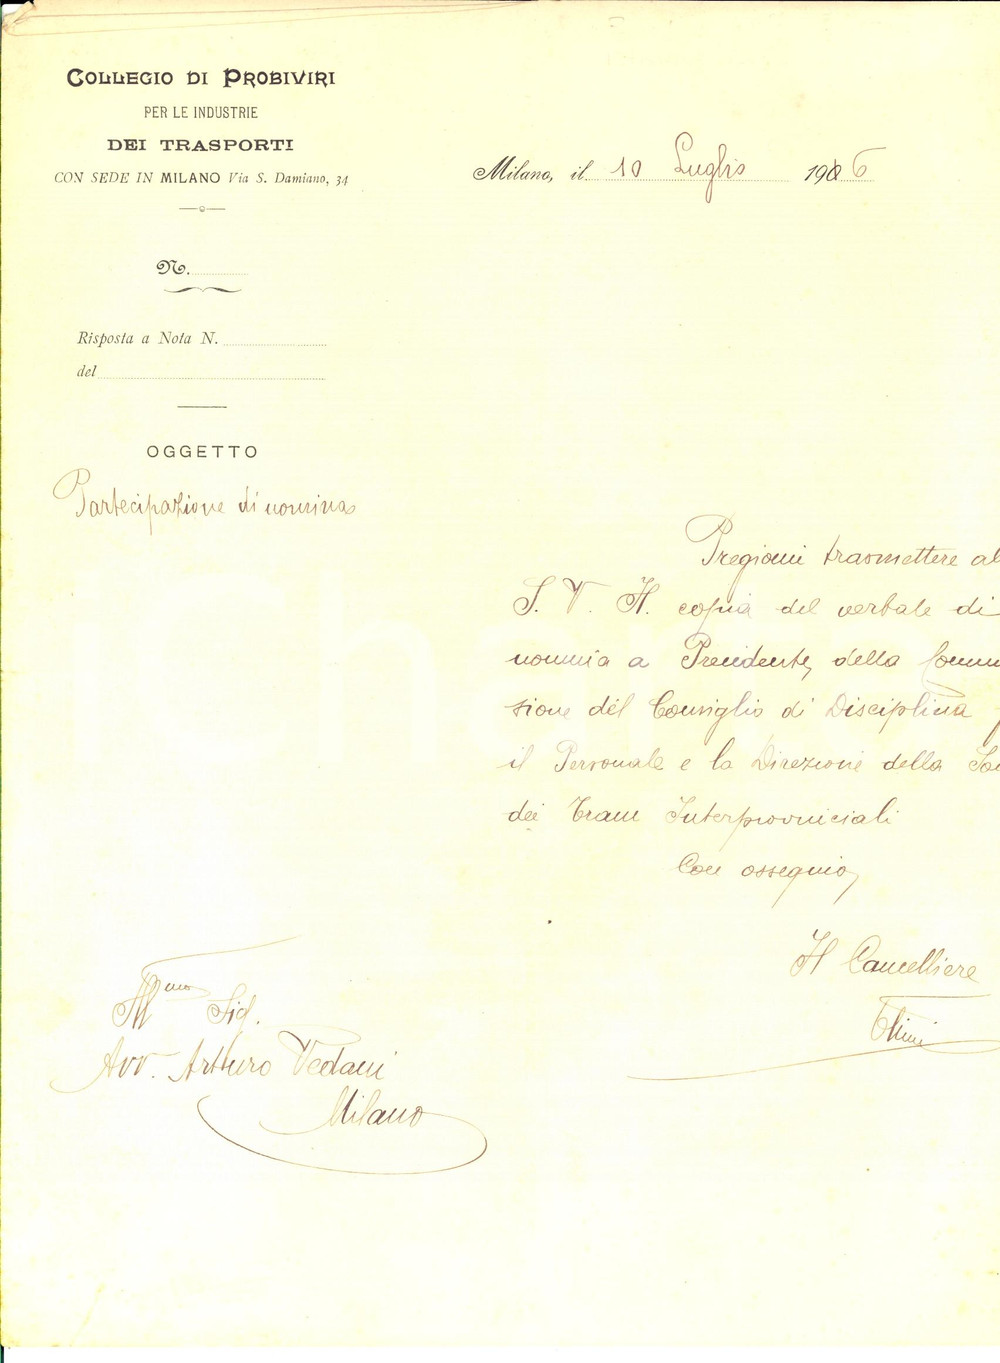 COLLEGIO DI PROBIVIRI
PER LE INDUSTRIE
DEI TRASPORTI
CON SEDE IN MILANO Via S. Damiano, 34
Milano, il 10 Luglio 1906
N.
Risposta a Nota N.
del
OGGETTO
Partecipazione di nomina
Pregiomi trasmettere al
S. V. Ill. copia del verbale di
nomina a Presidente della Comm
sione del Consiglio di Disciplina
il Personale e la Direzione della So
dei Tram Interprovinciali
Con ossequio,
Il Cancelliere
Ill.mo Sig.
Avv. Arturo Vedani
Milano